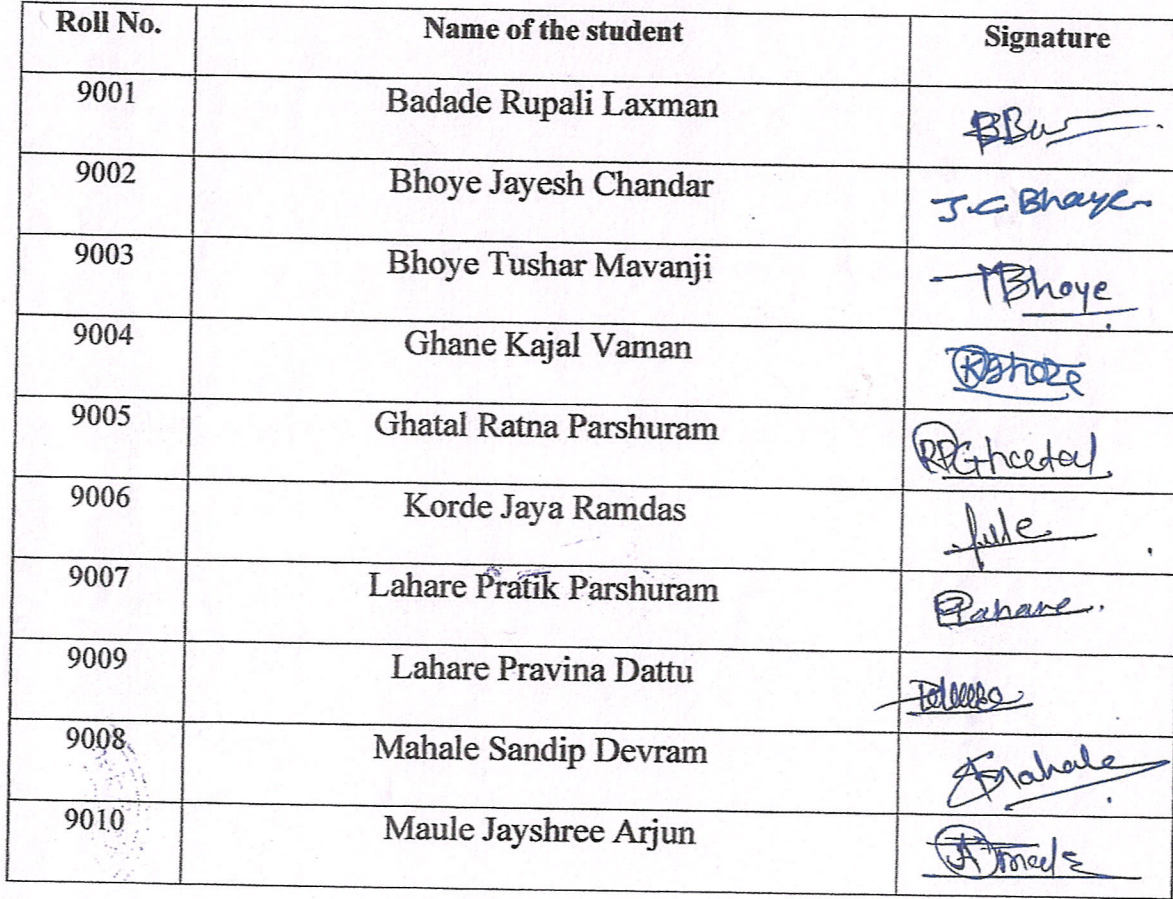 Roll No. Name of the student Signature
9001 Badade Rupali Laxman
9002 Bhoye Jayesh Chandar J.C. Bhoye
9003 Bhoye Tushar Mavanji TBhoye
9004 Ghane Kajal Vaman
9005 Ghatal Ratna Parshuram RPGhatal
9006 Korde Jaya Ramdas
9007 Lahare Pratik Parshuram
9009 Lahare Pravina Dattu
9008 Mahale Sandip Devram Smahale
9010 Maule Jayshree Arjun